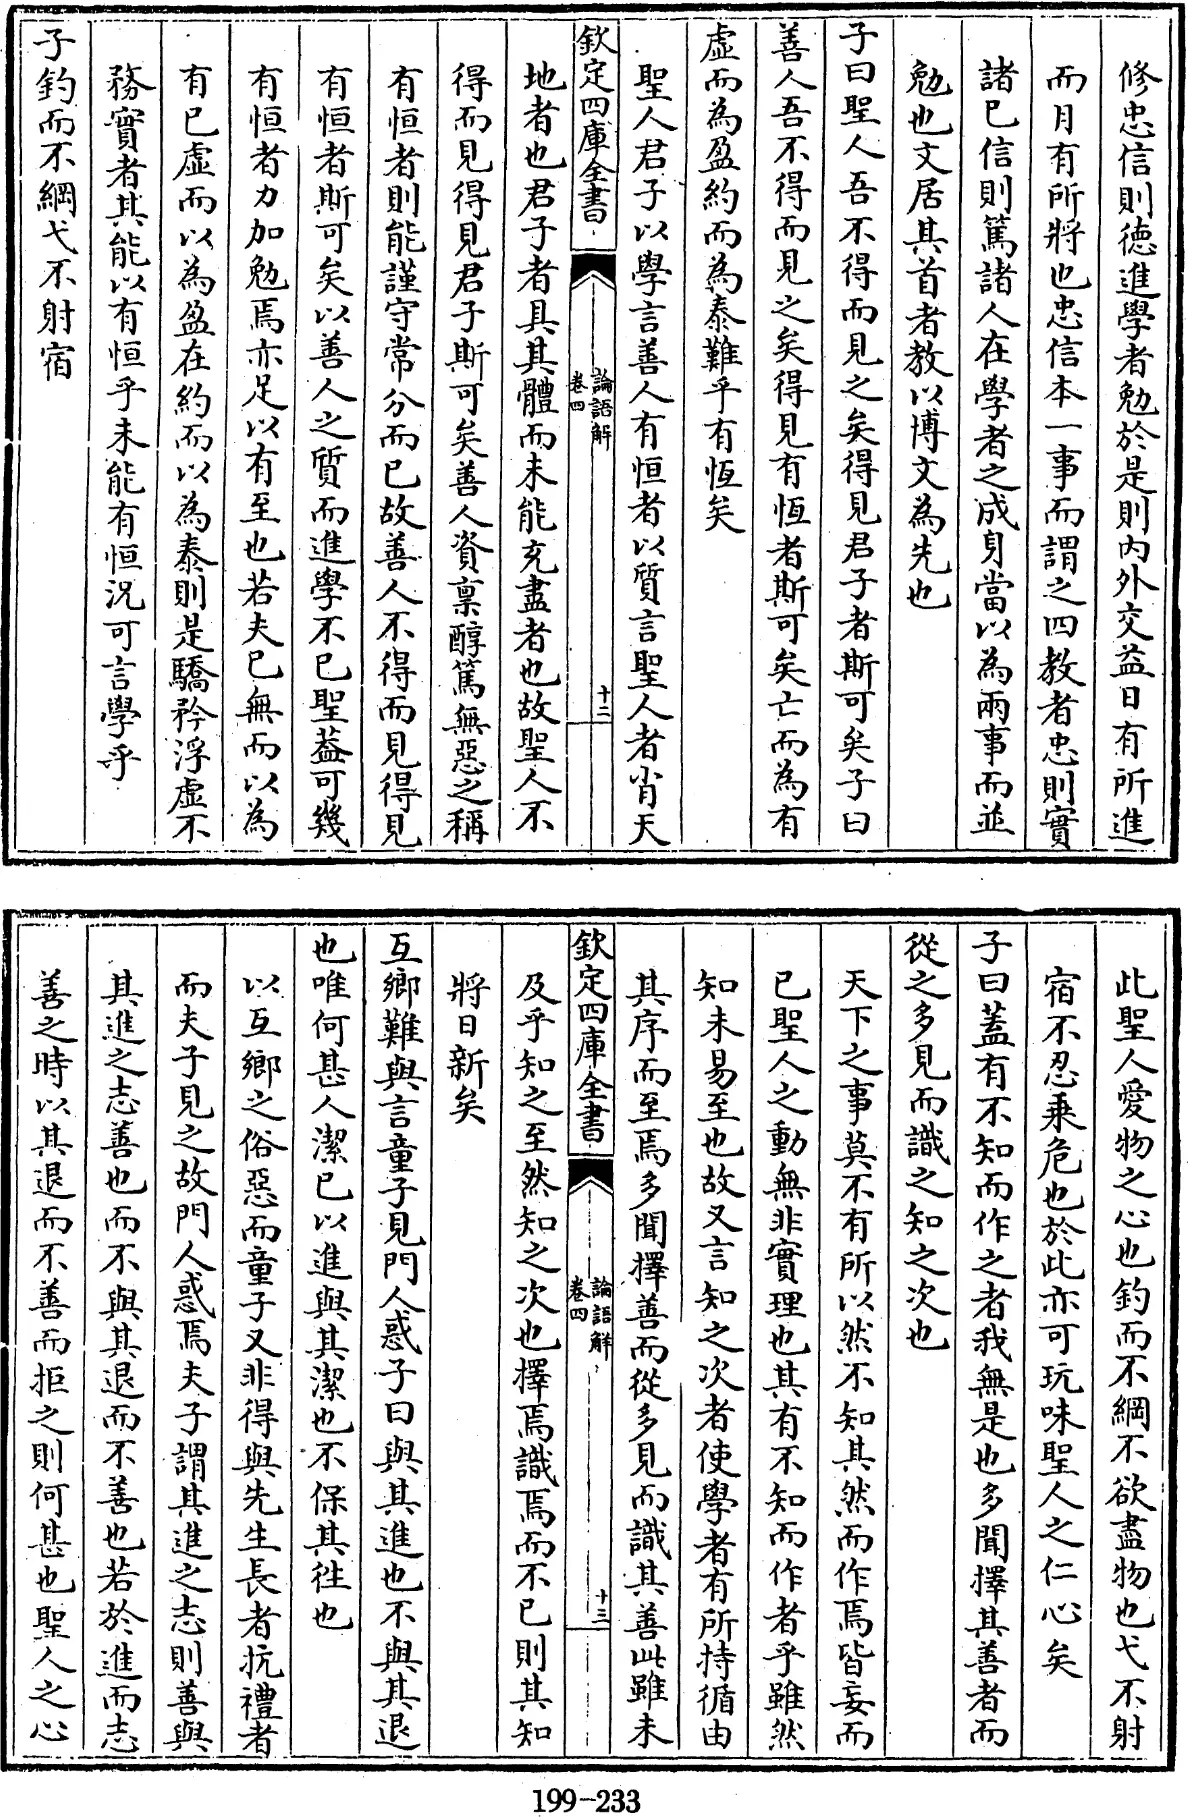 修忠信則徳進學者勉於是則内外交益日有所進
而月有所將也忠信本一事而謂之四教者忠則實
諸已信則篤諸人在學者之成身當以為兩事而並
勉也文居其首者教以博文為先也
子曰聖人吾不得而見之矣得見君子者斯可矣子曰
善人吾不得而見之矣得見有恆者斯可矣亡而為有
虛而為盈約而為泰難乎有恆矣
聖人君子以學言善人有恒者以質言聖人者肖天
欽定四庫全書
論語解
卷四
十二
地者也君子者具其體而未能充盡者也故聖人不
得而見得見君子斯可矣善人資稟醇篤無惡之稱
有恒者則能謹守常分而已故善人不得而見得見
有恒者斯可矣以善人之質而進學不已聖葢可幾
有恒者力加勉焉亦足以有至也若夫已無而以為
有已虛而以為盈在約而以為泰則是驕矜浮虛不
務實者其能以有恒乎未能有恒況可言學乎
子釣而不綱弋不射宿
此聖人愛物之心也釣而不綱不欲盡物也弋不射
宿不忍乗危也於此亦可玩味聖人之仁心矣
子曰葢有不知而作之者我無是也多聞擇其善者而
從之多見而識之知之次也
天下之事莫不有所以然不知其然而作焉皆妄而
已聖人之動無非實理也其有不知而作者乎雖然
知未易至也故又言知之次者使學者有所持循由
其序而至焉多聞擇善而從多見而識其善此雖未
欽定四庫全書
論語解
卷四
十三
及乎知之至然知之次也擇焉識焉而不已則其知
將日新矣
互鄉難與言童子見門人惑子曰與其進也不與其退
也唯何甚人潔已以進與其潔也不保其往也
以互鄉之俗惡而童子又非得與先生長者抗禮者
而夫子見之故門人惑焉夫子謂其進之志則善與
其進之志善也而不與其退而不善也若於進而志
善之時以其退而不善而拒之則何甚也聖人之心
199-233